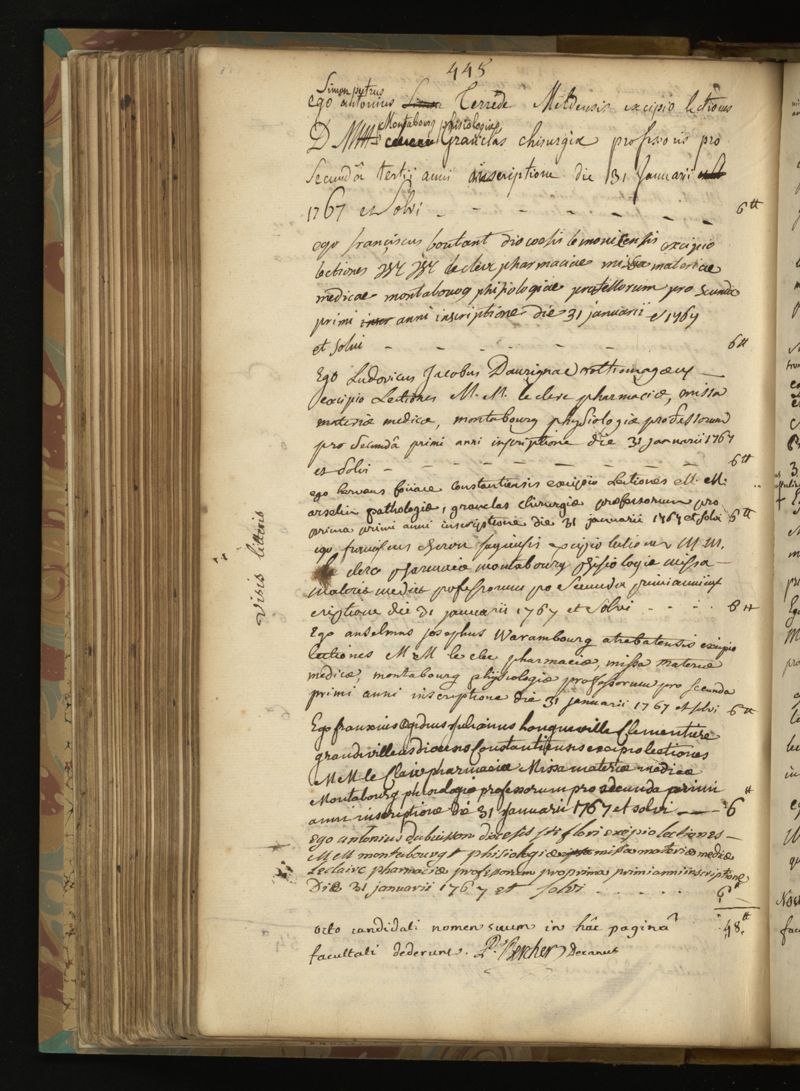 445
Simon petrus
ego antonius Terrede Meldensis excipio lectiones
Montabourg phisiologiæ
D M Gravelas chirurgiæ professoris pro
Secundâ tertii anni inscriptione die 31 Januarii
1767 et Solvi - - - - - - 6 tt
ego franciscus boutant diocoesis lemovicensis excipio
lectiones leclerc pharmaciae missa materiae
medicae montabourg phisiologiae professorum pro secunda
primi anni inscriptione die 31 januarii 1767
et solvi - - - - - - 6 tt
Ego Ludovicus Jacobus Dauvignac rothomagæus
excipio Lectiones M. M. le clerc pharmaciæ, missa
materiæ medicæ, montabourg physiologiæ professorum
pro Secundâ primi anni inscriptione die 31 januarii 1767
et Solvi - - - - - - 6 tt
ego herveus constantiensis excipio Lectiones M. M.
arselin pathologiæ, gravelas chirurgiæ professorum pro
prima primi anni inscriptione die 31 januarii 1767 et solvi 6 tt
ego sagiensis excipio lectiones M M.
le clerc pharmaciæ montabourg phisiologiæ missa
materiæ medicæ professorum pro Secunda primi anni ins
criptione die 31 januarii 1767 et Solvi - - - - 6 tt
Ego anselmus josephus Warambourg atrebatensis excipio
lectiones M M le clerc pharmaciæ, missa materiæ
medicæ, montabourg physiologiæ professorum pro secunda
primi anni inscriptione die 31 januarii 1767 et solvi 6 tt
Ego franciscus Egidius Julianus longueville Clementiere
grandivilleus dioecesis Constantiensis excipio lectiones
M M le Clerc pharmaciæ Missa materiæ medicæ
Montabourg phisiologiæ professorum pro secunda primi
anni inscriptione die 31 Januarii 1767 et solvi - 6 tt
ego antonius dubuisson diocesis sti flori excipio lectiones
M M montabourg phisiologiæ missa materiæ medicæ
Leclaire pharmaciæ professorum pro prima primi anni inscriptione
Die 31 januarii 1767 et solvi - - - - - 6 tt
octo candidati nomen suum in hâc paginâ 48 tt
facultati dederunt. P. Bercher Decanus
Visis litteris